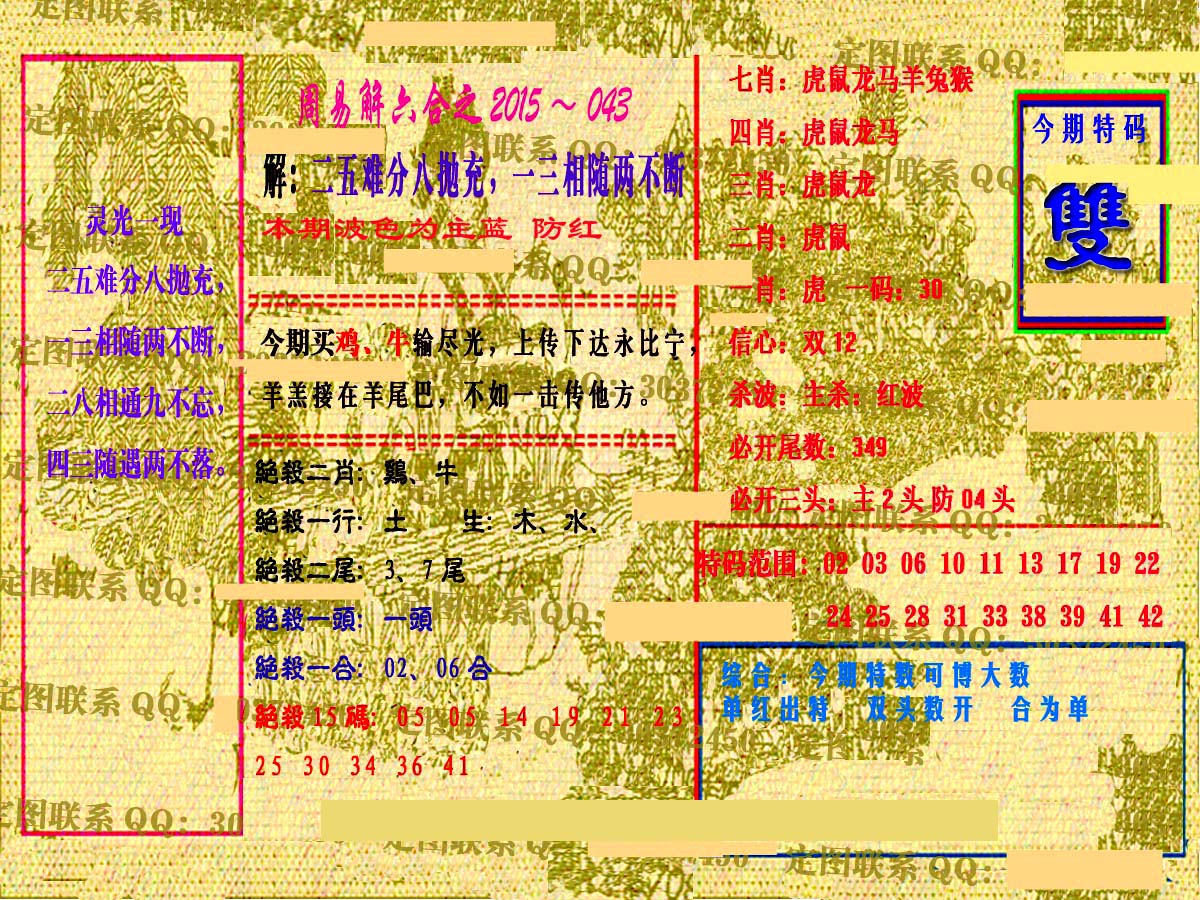 灵光一现
二五难分八抛充，
一三相随两不断，
二八相通九不忘，
四三随遇两不落。
周易解六合之 2015～043
解：二五难分八抛充，一三相随两不断
本期波色为主蓝 防红
今期买鸡、牛输尽光，上传下达永比宁，
羊羔接在羊尾巴，不如一击传他方。
絕殺二肖: 鷄、牛
絕殺一行: 土 生: 木、水、
絕殺二尾: 3、7 尾
絕殺一頭: 一頭
絕殺一合: 02、06 合
絕殺 15 碼: 05 05 14 19 21 23
25 30 34 36 41
七肖：虎鼠龙马羊兔猴
四肖：虎鼠龙马
三肖：虎鼠龙
二肖：虎鼠
一肖：虎 一码：30
信心：双 12
杀波：主杀：红波
必开尾数：349
必开三头：主 2 头 防 04 头
今期特码
雙
特码范围：02 03 06 10 11 13 17 19 22
24 25 28 31 33 38 39 41 42
综合：今期特数可博大数
单红出特 双头数开 合为单
定图联系 QQ：